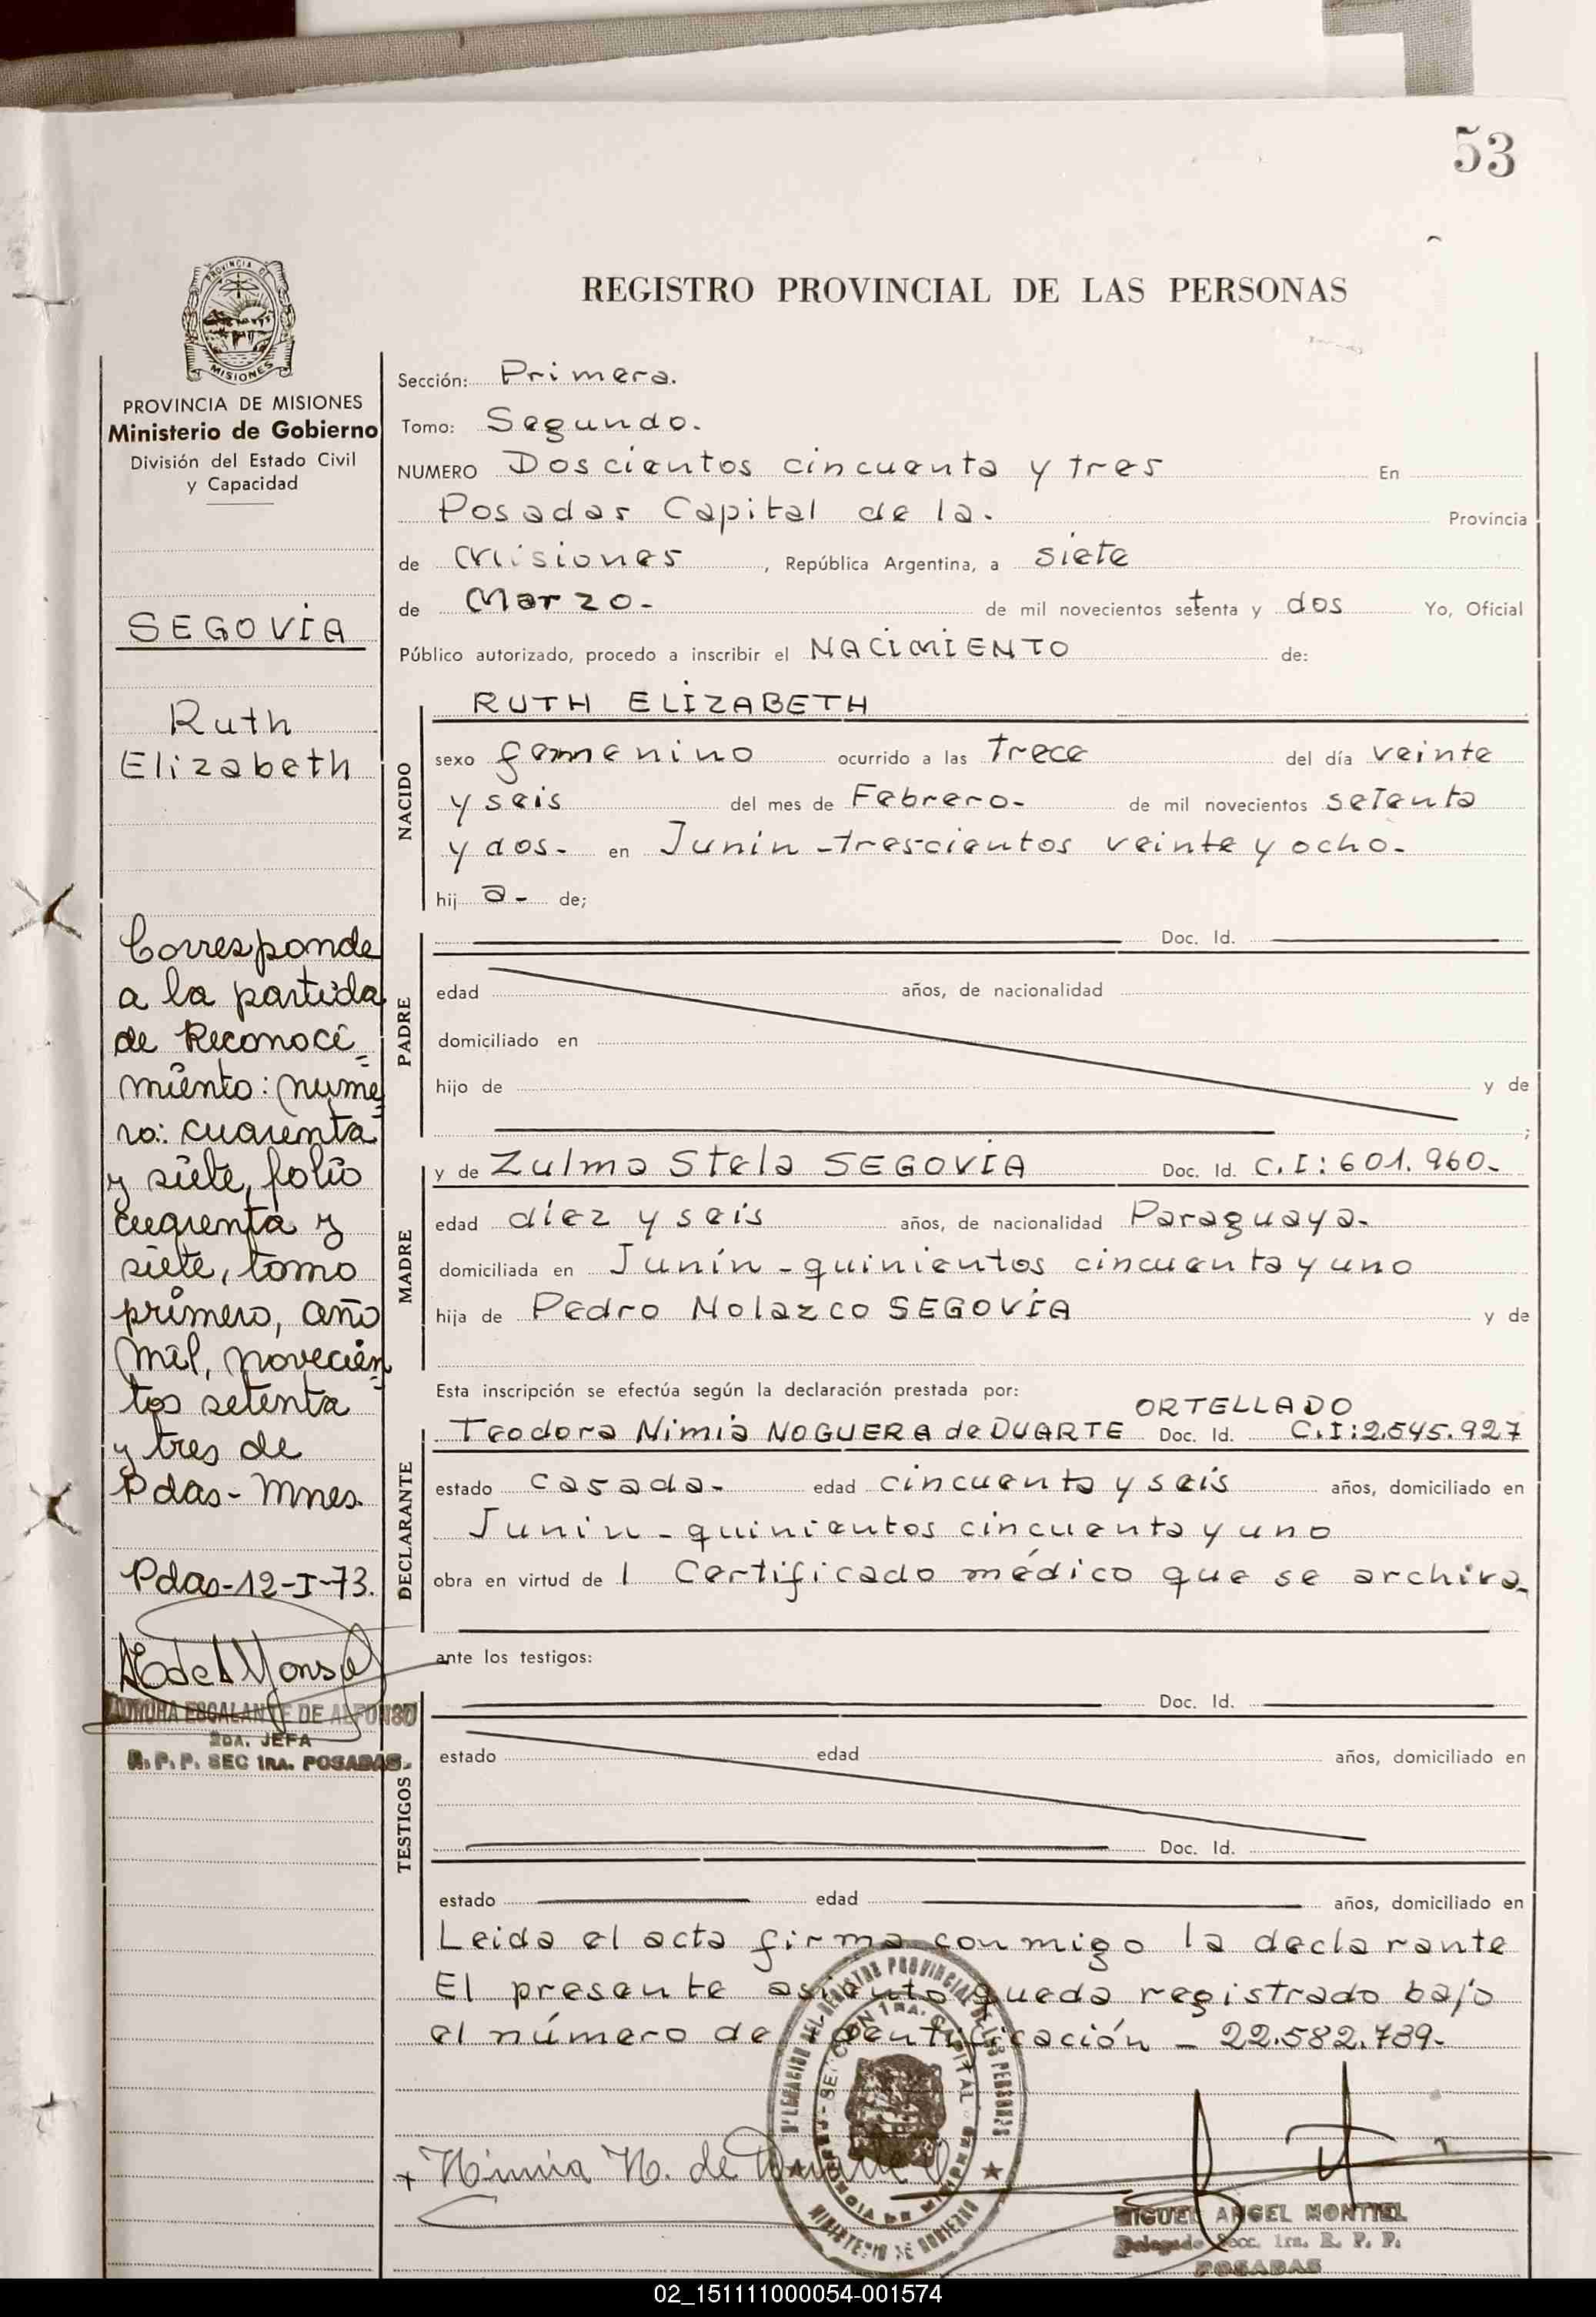 53
PROVINCIA DE
MISIONES
REGISTRO PROVINCIAL DE LAS PERSONAS
PROVINCIA DE MISIONES
Ministerio de Gobierno
División del Estado Civil
y Capacidad
SEGOVIA
Ruth
Elizabeth
Corresponde
a la partida
de Reconoci=
miento: nume=
ro: cuarenta
y siete, folio
cuarenta y
siete, tomo
primero, año
mil, novecien=
tos setenta
y tres de
Pdas- Mnes.
Pdas-12-I-73.
AURORA ESCALANTE DE ALFONSO
2DA. JEFA
R. P. P. SEC 1RA. POSADAS.
Sección: Primera.
Tomo: Segundo.
NUMERO Doscientos cincuenta y tres En
Posadas Capital de la. Provincia
de Misiones, República Argentina, a siete
de Marzo- de mil novecientos setenta y dos Yo, Oficial
Público autorizado, procedo a inscribir el NACIMIENTO de:
NACIDO
RUTH ELIZABETH
sexo femenino ocurrido a las Trece del día veinte
y seis del mes de Febrero- de mil novecientos setenta
y dos- en Junin -trescientos veinte y ocho-
hij a- de;
PADRE
Doc. Id.
edad años, de nacionalidad
domiciliado en
hijo de y de
;
MADRE
y de Zulma Stela SEGOVIA Doc. Id. C.I: 601.960-
edad diez y seis años, de nacionalidad Paraguaya-
domiciliada en Junín -quinientos cincuenta y uno
hija de Pedro Nolazco SEGOVIA y de
Esta inscripción se efectúa según la declaración prestada por:
DECLARANTE
ORTELLADO
Teodora Nimia NOGUERA de DUARTE Doc. Id. C.I:2.545.927
estado casada- edad cincuenta y seis años, domiciliado en
Junin - quinientos cincuenta y uno
obra en virtud de 1 Certificado médico que se archiva-
ante los testigos:
TESTIGOS
Doc. Id.
estado edad años, domiciliado en
Doc. Id.
estado edad años, domiciliado en
Leida el acta firma conmigo la declarante
El presente asiento queda registrado bajo
el número de identificación - 22.582.739-
DELEGACION DEL REGISTRO PROVINCIAL DE LAS PERSONAS
MINISTERIO DE GOBIERNO
SECCION 1RA. CAPITAL
PROVINCIA DE MISIONES
Nimia N. de Duarte
MIGUEL ANGEL MONTIEL
Delegado Secc. 1ra. R. P. P.
POSADAS
02_151111000054-001574